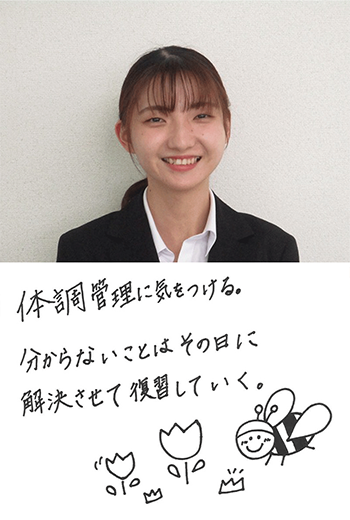 体調管理に気をつける。
分からないことはその日に
解決させて復習していく。